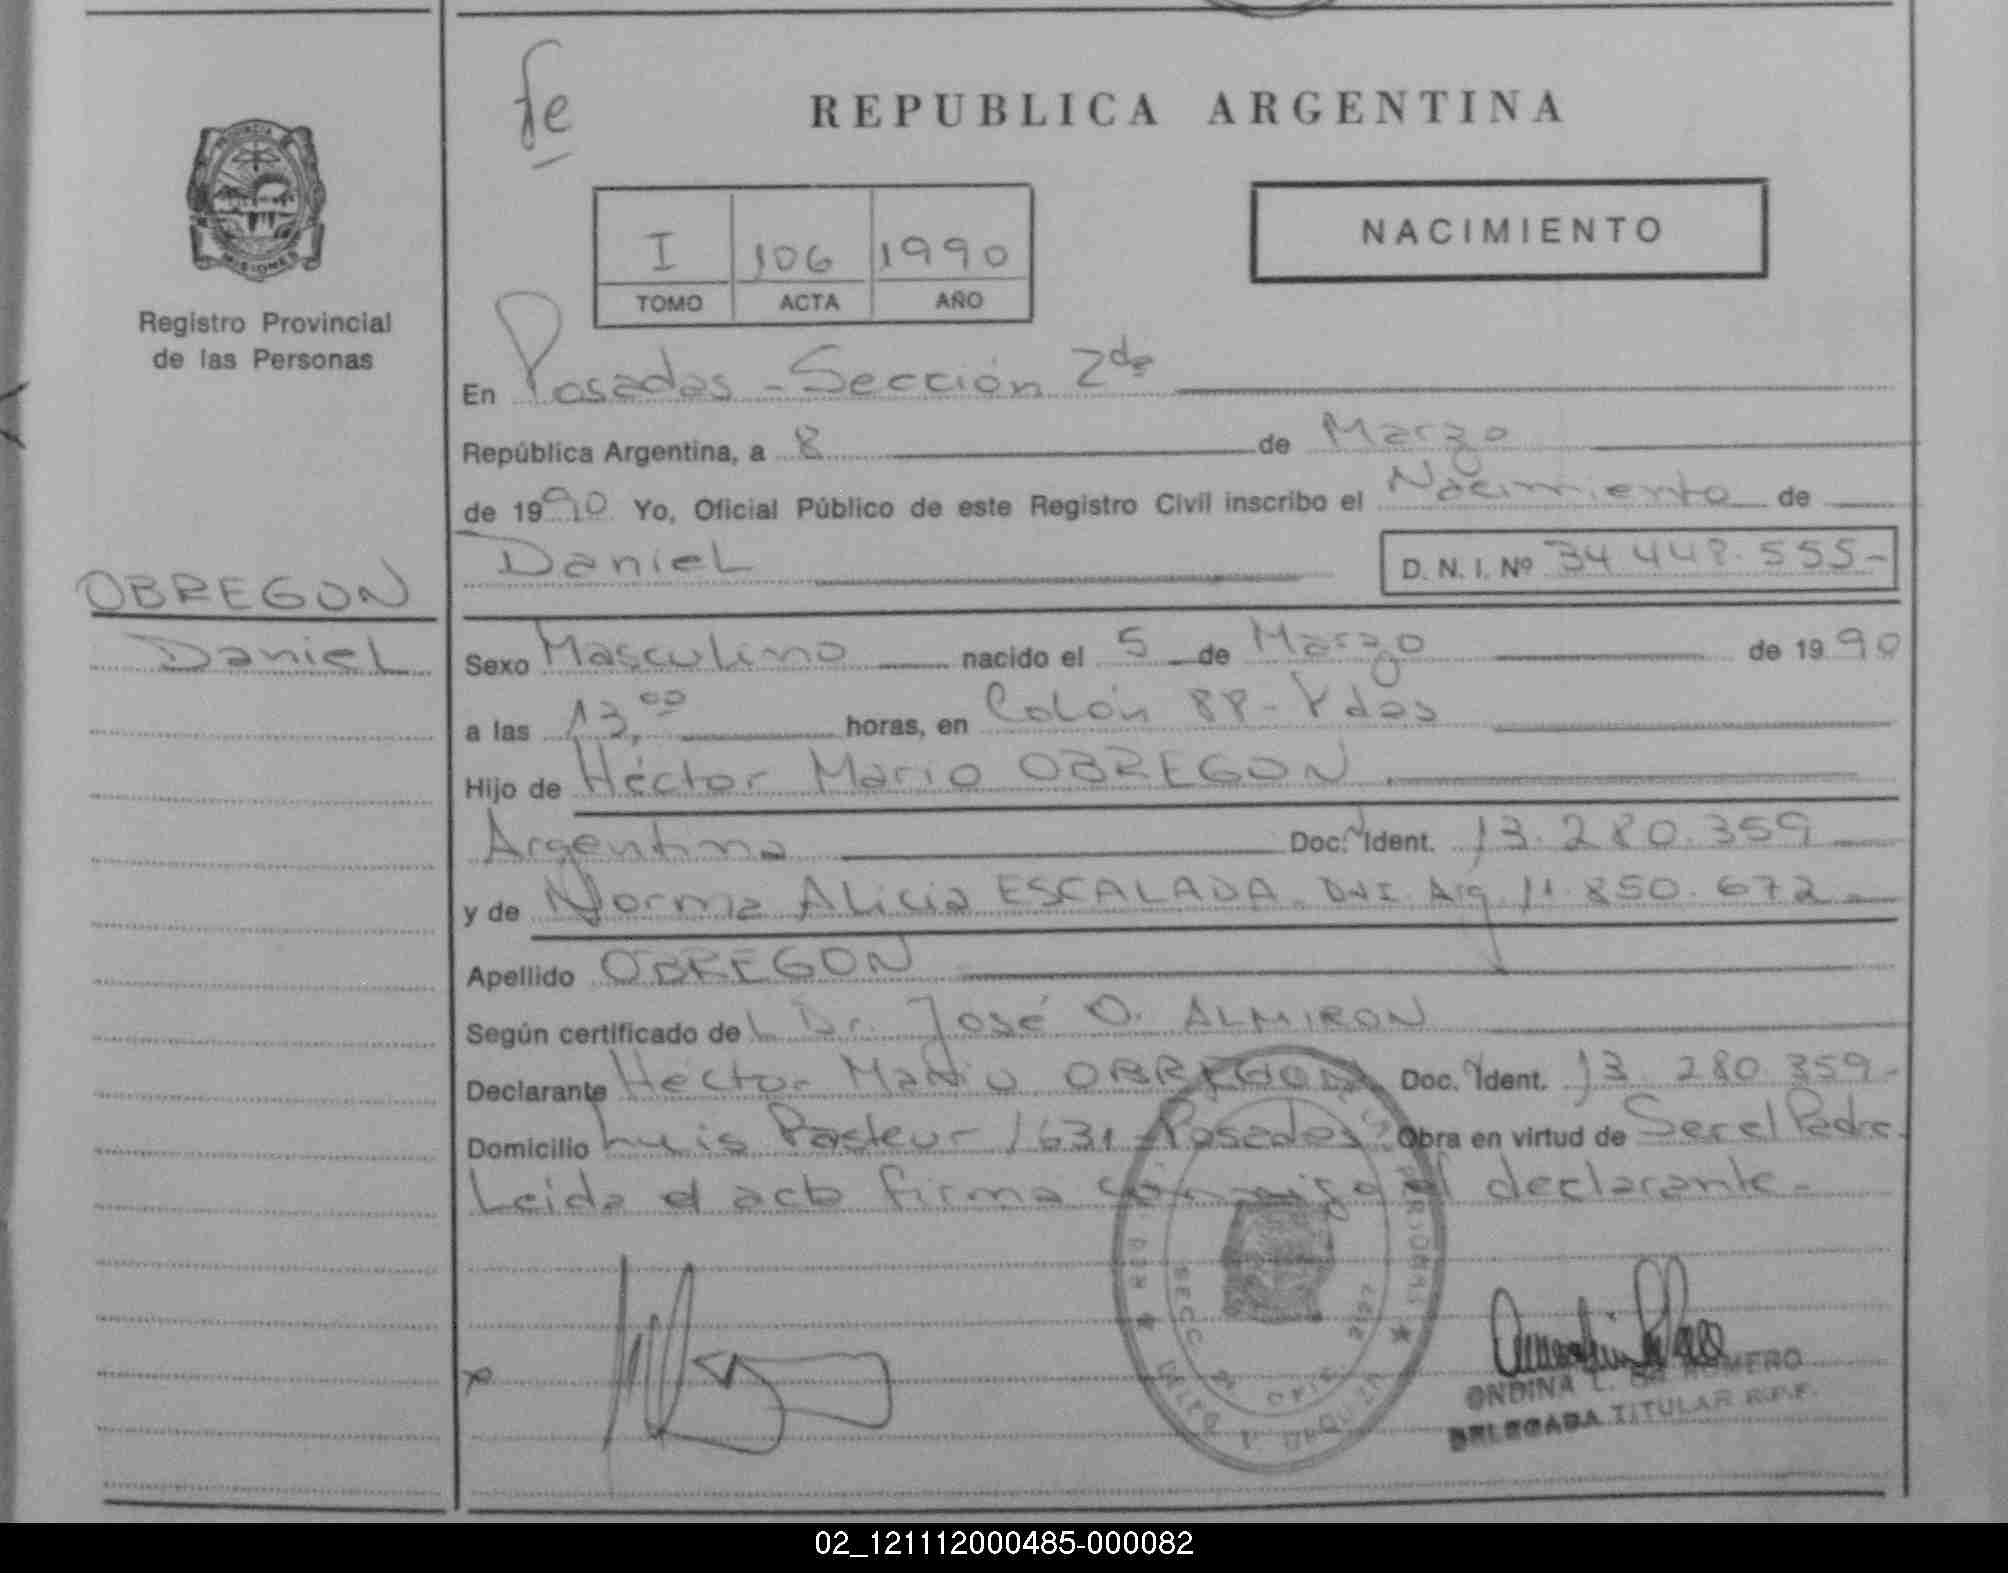 fe
REPUBLICA ARGENTINA
PROVINCIA
MISIONES
Registro Provincial
de las Personas
I 106 1990
TOMO ACTA AÑO
NACIMIENTO
En Posadas - Sección 2da
República Argentina, a 8 de Marzo
de 1990 Yo, Oficial Público de este Registro Civil inscribo el Nacimiento de
Daniel D. N. I. Nº 34 448.555-
OBREGON
Daniel
Sexo Masculino nacido el 5 de Marzo de 1990
a las 13,00 horas, en Colón 88 - Pdas
Hijo de Héctor Mario OBREGON
Argentina Doc. Ident. 13.280.359
y de Norma Alicia ESCALADA. DNI. Arg. 11.850.672
Apellido OBREGON
Según certificado del Dr. José O. ALMIRON
Declarante Héctor Mario OBREGON Doc. Ident. 13.280.359-
Domicilio Luis Pasteur 1631 Posadas Obra en virtud de Ser el Padre.
Leida el acta firma conmigo el declarante.-
ONDINA L. DE ROMERO
DELEGADA TITULAR R.P.P.
02_121112000485-000082